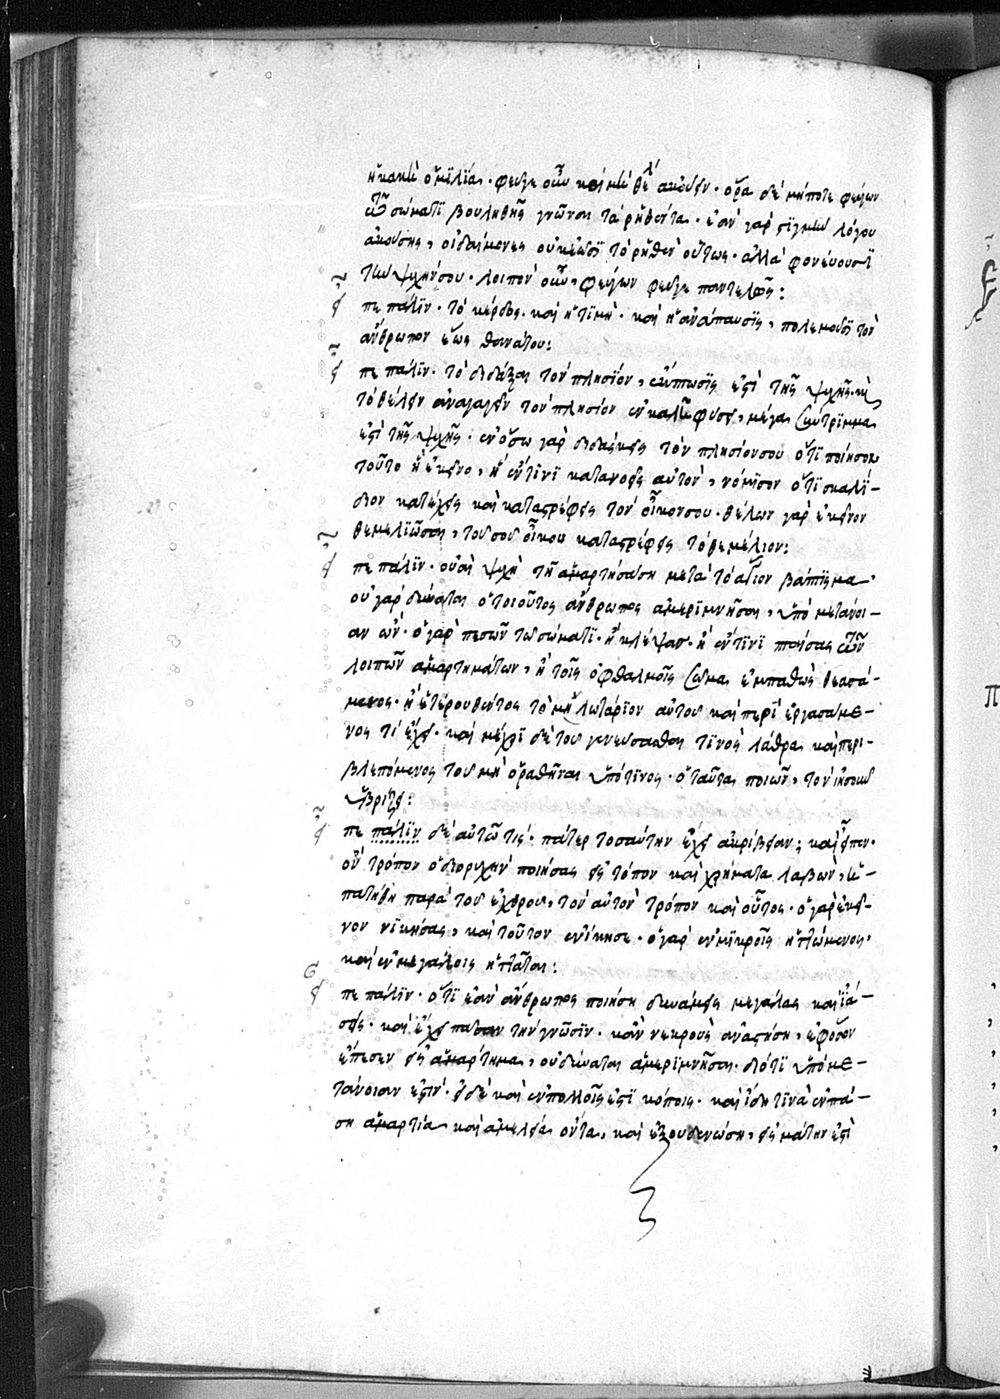 ἢ κακὴ ὁμιλία · φεῦγε οὖν καὶ μὴ θέλε ἀκούειν · ὅρα δὲ μήποτε φεύγων
τῷ σώματι βουληθῇς γνῶναι τὰ ῥηθέντα · ἐὰν γὰρ στιγμὴν λόγου
ἀκούσῃς, οἱ δαίμονες οὐκ ἐῶσι τὸ ῥηθὲν οὕτως · ἀλλὰ φονεύουσι
τὴν ψυχήν σου · λοιπὸν οὖν, φεύγων φεῦγε παντελῶς :
πε πάλιν · τὸ κέρδος · καὶ ἡ τιμὴ · καὶ ἡ ἀνάπαυσις, πολεμοῦσι τὸν
ἄνθρωπον ἕως θανάτου :
πε πάλιν · τὸ διδάξαι τὸν πλησίον, ἔκπτωσις ἐστὶ τῆς ψυχῆς · καὶ
τὸ θέλειν ἀναγαγεῖν τὸν πλησίον ἐν καλῇ φύσει, μέγα σύντριμμα
ἐστὶ τῆς ψυχῆς · ἐν ὅσῳ γὰρ διδάσκεις τὸν πλησίον σου ὅτι ποίησον
τοῦτο ἢ ἐκεῖνο, ἢ ἔν τινι κατανοεῖς αὐτὸν, νόμισον ὅτι σκαλί-
διον κατέχεις καὶ καταστρέφεις τὸν οἶκον σου · θέλων γὰρ ἐκεῖνον
θεμελιῶσαι, τοῦ σοῦ οἴκου καταστρέφεις τὸ θεμέλιον :
πε πάλιν · οὐαὶ ψυχῇ τῇ ἁμαρτησάσῃ μετὰ τὸ ἅγιον βάπτισμα ·
οὐ γὰρ δύναται ὁ τοιοῦτος ἄνθρωπος ἀμεριμνῆσαι, ὑπὸ μετάνοι-
αν ὢν · ὁ γὰρ πεσὼν τῷ σώματι · ἢ κλέψας · ἢ ἔν τινι ποιήσας τῶν
λοιπῶν ἁμαρτημάτων, ἢ τοῖς ὀφθαλμοῖς σῶμα ἐμπαθῶς θεασά-
μενος · ἢ ἑτέρου θέντος τὸ μηλωτάριον αὐτοῦ καὶ περιεργασάμε-
νος τί ἔχει · καὶ μέχρι δὲ τοῦ γεύσασθαι τινὸς λάθρα καὶ περι-
βλεπόμενος τοῦ μὴ ὁραθῆναι ὑπό τινος · ὁ ταῦτα ποιῶν, τὸν ἰησοῦν
ὑβρίζει :
πε πάλιν δὲ αὐτῷ τίς · πάτερ τοσαύτην ἔχει ἀκρίβειαν ; καὶ εἶπεν ·
ὃν τρόπον ὁ διορυχὴν ποιήσας εἰς τόπον καὶ χρήματα λαβὼν, ἠ-
πατήθη παρὰ τοῦ ἐχθροῦ, τὸν αὐτὸν τρόπον καὶ οὗτος · ὁ γὰρ ἐκεῖ-
νον νικήσας, καὶ τοῦτον ἐνίκησε · ὁ γὰρ ἐν μικροῖς ἡττώμενος,
καὶ ἐν μεγάλοις ἡττᾶται :
πε πάλιν · ὅτι ἐὰν ἄνθρωπος ποιήσῃ δυνάμεις μεγάλας καὶ ἰά-
σεις · καὶ ἔχει πᾶσαν τὴν γνῶσιν · κἂν νεκροὺς ἀναστήσῃ, ἐφόσον
ἔπεσεν εἰς ἁμάρτημα, οὐ δύναται ἀμεριμνῆσαι · διότι ὑπὸ με-
τάνοιαν ἐστίν · εἰ δὲ καὶ ἐν πολλοῖς ἐστι κόποις · καὶ ἴδῃ τινὰ ἐν πά-
σῃ ἁμαρτίᾳ καὶ ἀμελείᾳ ὄντα, καὶ ἐξουδενώσῃ, εἰς μάτην ἐστὶ